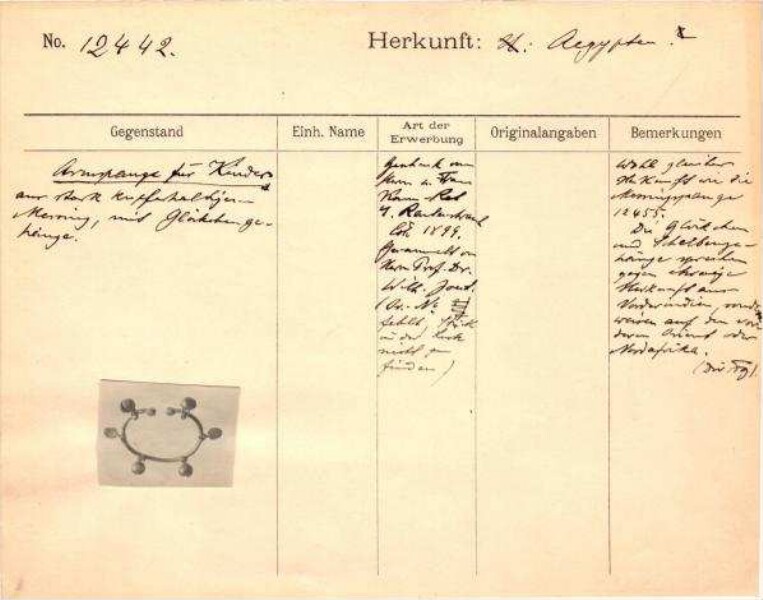 No. 12442.
Herkunft: Aegypten ?
Gegenstand
Einh. Name
Art der
Erwerbung
Originalangaben
Bemerkungen
Armspange für Kinder
aus stark kupferhaltigem
Messing, mit Glöckchenge-
hänge.
Geschenk von
Herrn u. Frau
Kom. Rat
Rautenstrauch
Cöln 1899.
Gesammelt von
Herrn Prof. Dr.
Wilh. Joest.
(Or. No.
fehlt, Stück
in der Liste
nicht zu
finden)
Wohl gleicher
Herkunft wie die
Messingspange
12455.
Die Glöckchen
und Scheibenge-
hänge sprechen
gegen etwaige
Herkunft aus
Vorderindien,
weisen auf den vor-
deren Orient oder
Nordafrika.